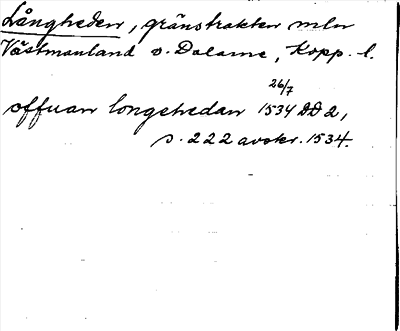 Långheden, gränstrakten mln
Västmanland o. Dalarne, Kopp. l.
26/7
offuan longehedan 1534 DD 2,
s. 222 avskr. 1534.